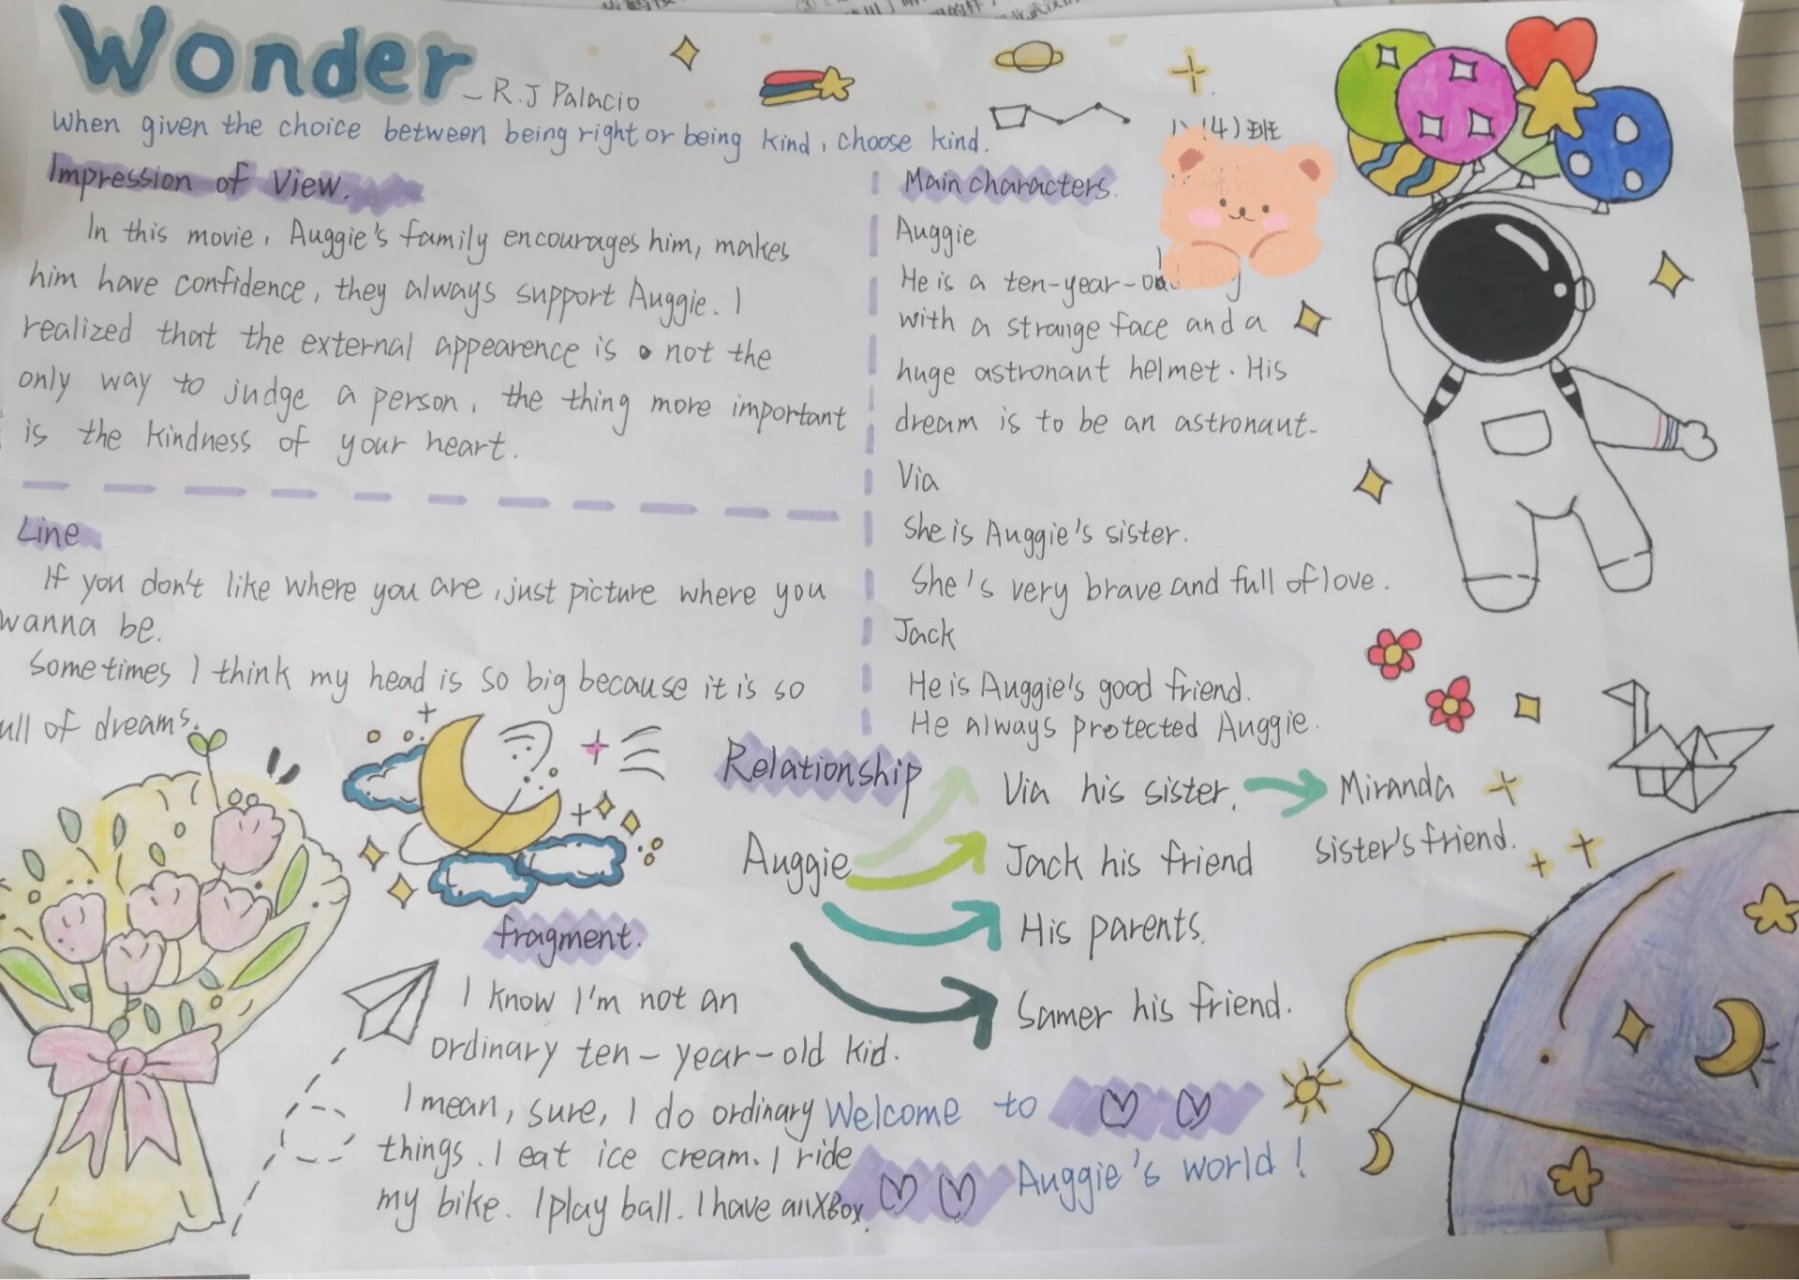 Wonder
- R.J Palacio
When given the choice between being right or being kind, choose kind.
八(4)班
Impression of View.
In this movie, Auggie's family encourages him, makes
him have confidence, they always support Auggie. I
realized that the external appearence is not the
only way to judge a person, the thing more important
is the kindness of your heart.
Line
If you don't like where you are, just picture where you
wanna be.
Sometimes I think my head is so big because it is so
ull of dreams.
Main characters.
Auggie
He is a ten-year-
with a strange face and a
huge astronant helmet. His
dream is to be an astronaut.
Via
She is Auggie's sister.
She's very brave and full of love.
Jack
He is Auggie's good friend.
He always protected Auggie.
Relationship
Auggie
Via his sister.
Miranda
sister's friend.
Jack his friend
His parents.
Samer his friend.
fragment.
I know I'm not an
ordinary ten-year-old kid.
I mean, sure, I do ordinary
things. I eat ice cream. I ride
my bike. I play ball. I have an XBox.
Welcome to
Auggie's world!